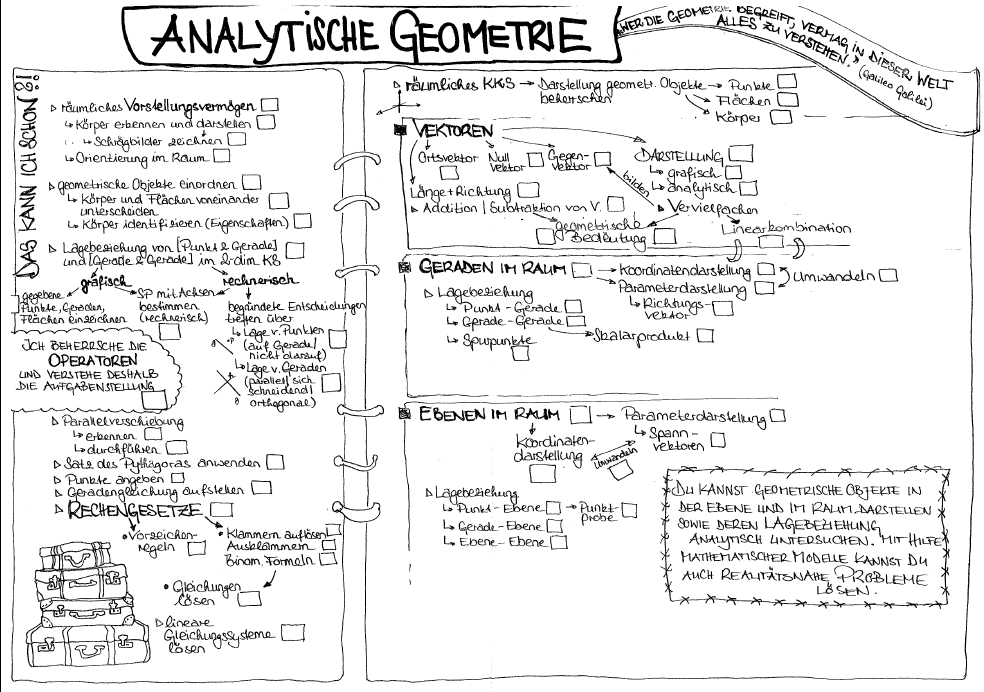 ANALYTISCHE GEOMETRIE
„WER DIE GEOMETRIE BEGREIFT, VERMAG IN DIESER WELT
ALLES ZU VERSTEHEN." (Galileo Galilei)
DAS KANN ICH SCHON!?!
räumliches Vorstellungsvermögen
Körper erkennen und darstellen
Schrägbilder zeichnen
Orientierung im Raum
geometrische Objekte einordnen
Körper und Flächen voneinander
unterscheiden
Körper identifizieren (Eigenschaften)
Lagebeziehung von [Punkt & Gerade]
und [Gerade & Gerade] im 2-dim KS
grafisch
rechnerisch
gegebene
Punkte, Geraden,
Flächen einzeichnen
SP mit Achsen
bestimmen
(rechnerisch)
begründete Entscheidungen
treffen über
Lage v. Punkten
(auf Gerade/
nicht darauf)
Lage v. Geraden
(parallel/sich
schneidend/
orthogonal)
ICH BEHERRSCHE DIE
OPERATOREN
UND VERSTEHE DESHALB
DIE AUFGABENSTELLUNG
Parallelverschiebung
erkennen
durchführen
Satz des Pythagoras anwenden
Punkte angeben
Geradengleichung aufstellen
RECHENGESETZE
Vorzeichen-
regeln
Klammern auflösen
Ausklammern
Binom. Formeln
Gleichungen
lösen
lineare
Gleichungssysteme
lösen
räumliches KKS → Darstellung geometr. Objekte → Punkte
beherrschen
Flächen
Körper
VEKTOREN
Ortsvektor
Null
vektor
Gegen-
vektor
DARSTELLUNG
grafisch
analytisch
Länge + Richtung
bilden
Addition / Subtraktion von V.
Vervielfachen
geometrische
Bedeutung
Linearkombination
GERADEN IM RAUM
Koordinatendarstellung
Parameterdarstellung
Umwandeln
Richtungs-
vektor
Lagebeziehung
Punkt-Gerade
Gerade-Gerade
Skalarprodukt
Spurpunkte
EBENEN IM RAUM → Parameterdarstellung
Spann-
vektoren
Koordinaten-
darstellung
umwandeln
Lagebeziehung
Punkt-Ebene → Punkt-
probe
Gerade-Ebene
Ebene-Ebene
DU KANNST GEOMETRISCHE OBJEKTE IN
DER EBENE UND IM RAUM DARSTELLEN
SOWIE DEREN LAGEBEZIEHUNG
ANALYTISCH UNTERSUCHEN. MIT HILFE
MATHEMATISCHER MODELLE KANNST DU
AUCH REALITÄTSNAHE PROBLEME
LÖSEN.